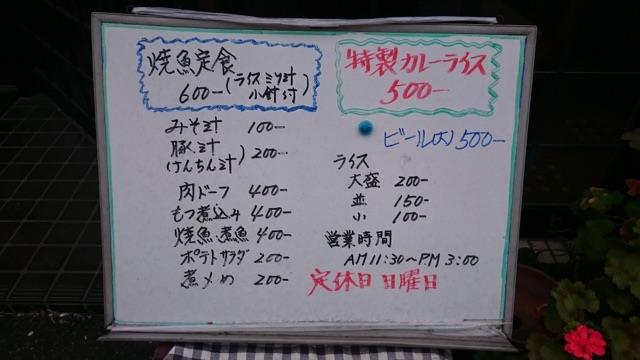 焼魚定食
600-(ライスミソ汁
小鉢付)
みそ汁 100-
豚汁
(けんちん汁) 200-
肉ドーフ 400-
もつ煮込み 400-
焼魚・煮魚 400-
ポテトサラダ 200-
煮〆め 200-
特製カレーライス
500-
ビール(大) 500-
ライス
大盛 200-
並 150-
小 100-
営業時間
AM11:30〜P.M 3:00
定休日 日曜日